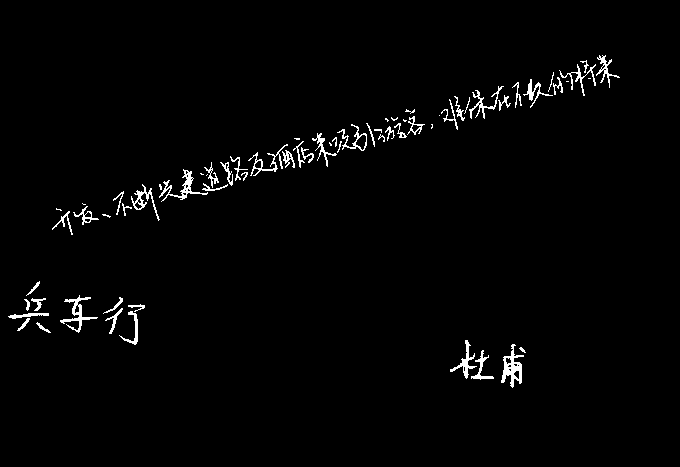 开发、不断兴建道路及酒店来吸引游客,难保在不久的将来
兵车行
杜甫